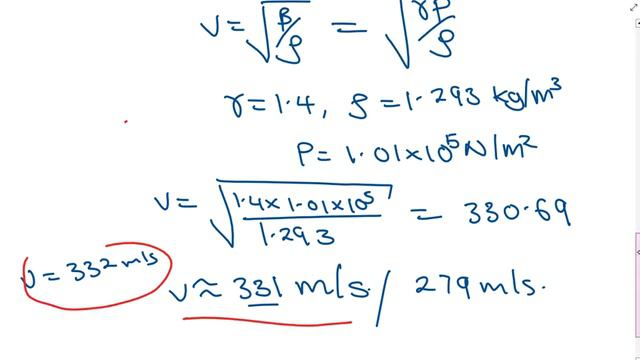 v = √β/ρ = √γp/ρ
γ = 1.4, ρ = 1.293 kg/m³
P = 1.01×10⁵ N/m²
v = √1.4×1.01×10⁵/1.293 = 330.69
v = 332 m/s
v ≈ 331 m/s / 279 m/s.